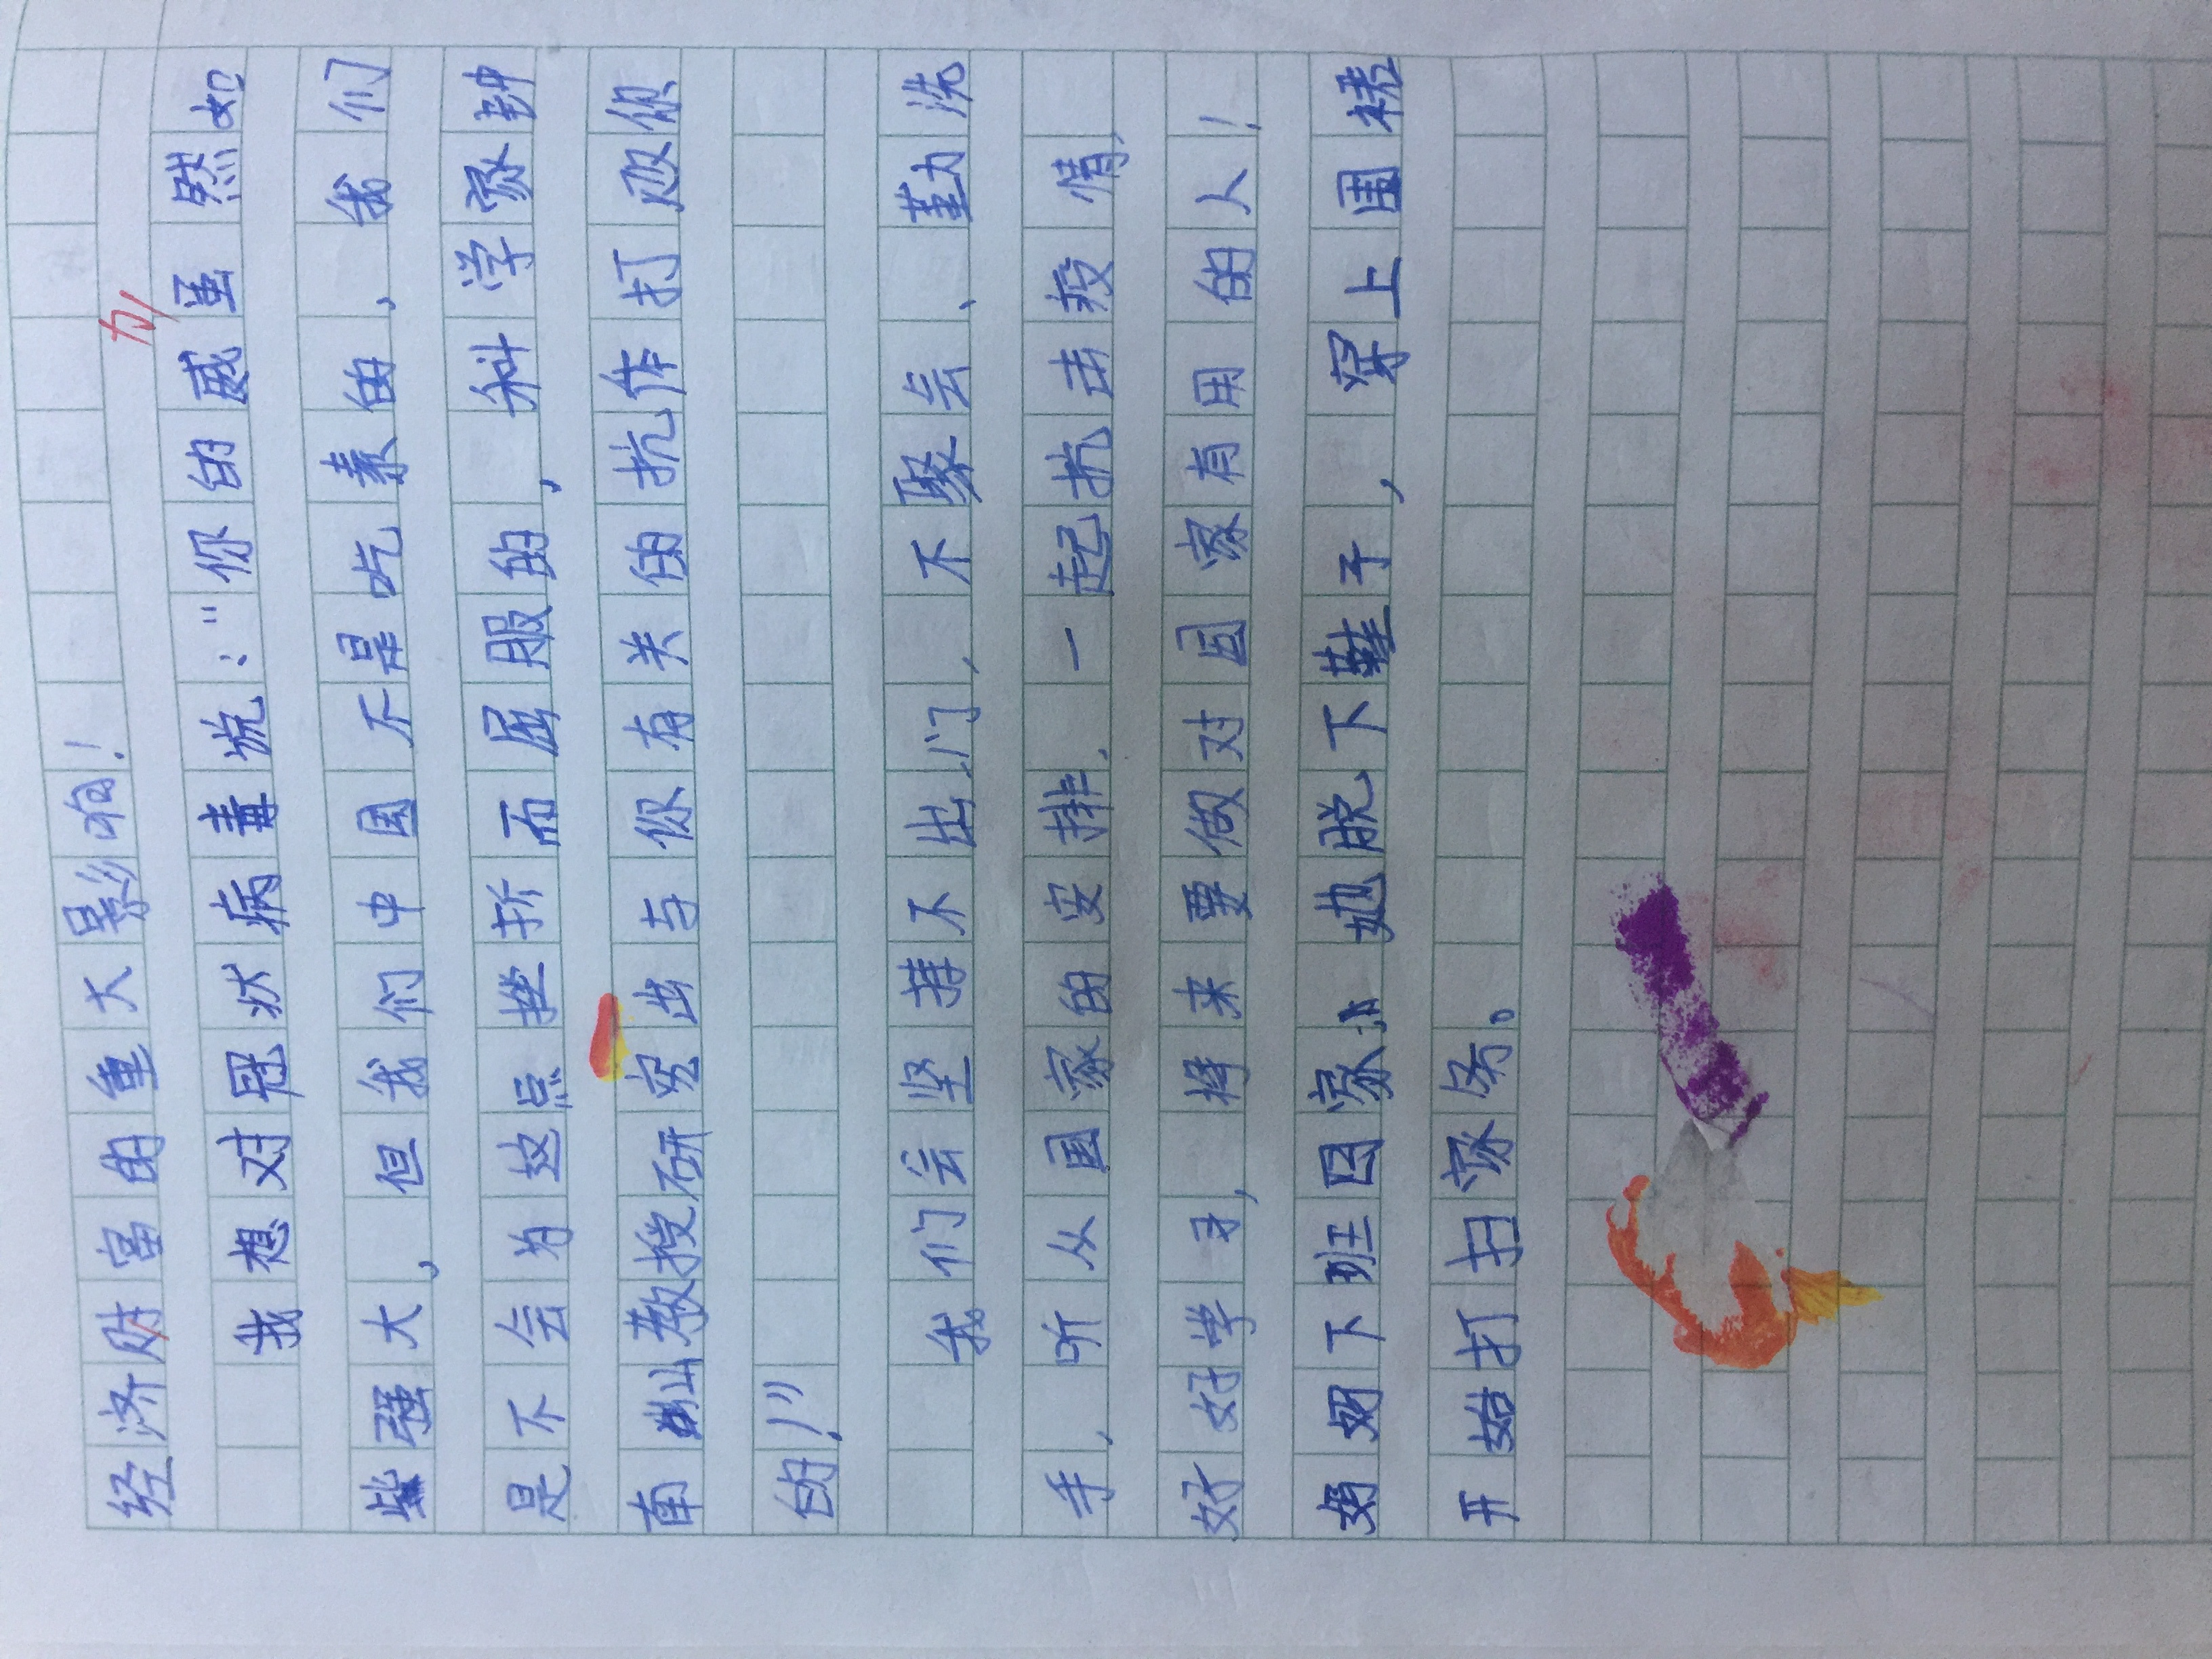 经济财富的重大影响!
力
我想对冠状病毒说:"你的威虽然如
些强大,但我们中国不是吃素的,我们
是不会为这点挫折而屈服的,科学家钟
南山教授研究出与你有关的抗体打败你
的!"
我们会坚持不出门,不聚会、勤洗
手,听从国家的安排,一起抗击疫情,
好好学习,将来要做对国家有用的人!
妈妈下班回家 她脱下鞋子,穿上围裙
开始打扫家务。